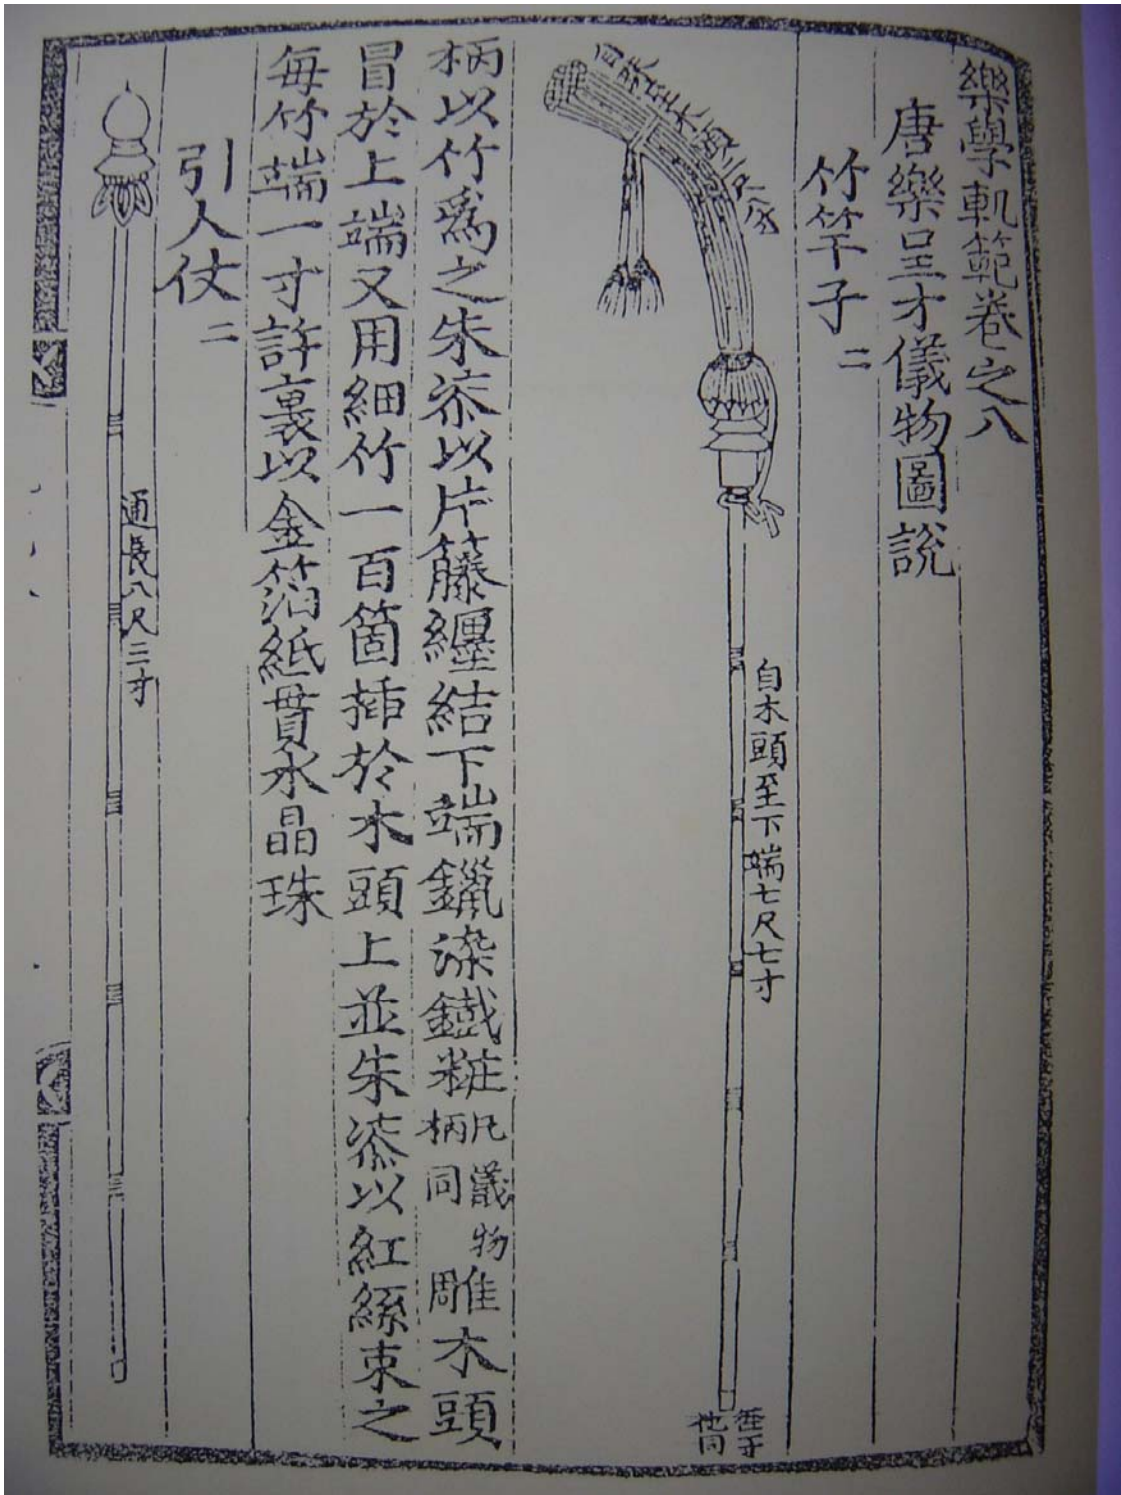 樂學軌範卷之八
唐樂呈才儀物圖說
竹竿子二
自木頭至下端七尺七寸
他同
柄以竹爲之朱漆以片籐纏結下端鑞染鐵粧凡儀物柄同雕木頭
冒於上端又用細竹一百箇揷於木頭上並朱漆以紅絲束之
每竹端一寸許裹以金箔紙貫水晶珠
引人仗二
通長八尺三寸